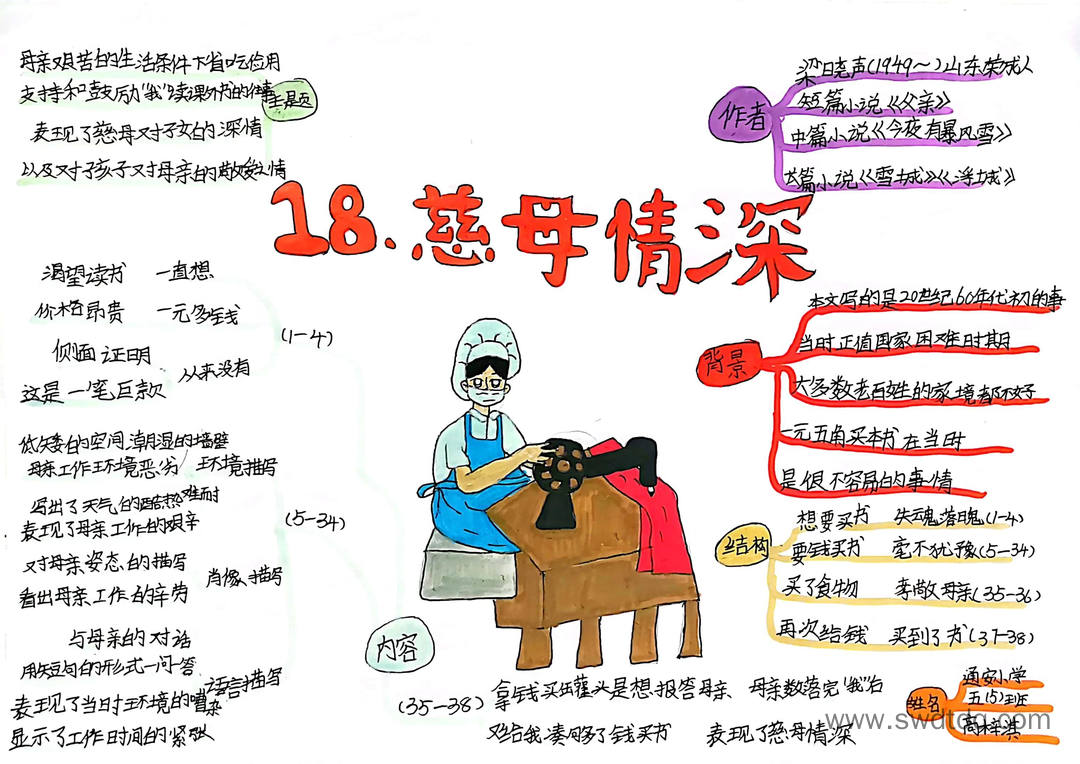 18.慈母情深
主题
母亲艰苦的生活条件下省吃俭用
支持和鼓励"我"读课外书的件事
表现了慈母对子女的深情
以及对子孩子对母亲的敬爱之情
作者
梁晓声(1949~)山东荣成人
短篇小说《父亲》
中篇小说《今夜有暴风雪》
长篇小说《雪城》《浮城》
背景
本文写的是20世纪60年代初的事
当时正值国家困难时期
大多数老百姓的家境都不好
一元五角买本书在当时
是很不容易的事情
结构
想要买书 失魂落魄(1-4)
要钱买书 毫不犹豫(5-34)
买了食物 孝敬母亲(35-36)
再次给钱 买到了书(37-38)
内容
(1-4)
渴望读书 一直想
价格昂贵 一元多钱
侧面证明
这是一笔巨款 从来没有
(5-34)
低矮的空间,潮湿的墙壁
母亲工作环境恶劣 环境描写
写出了天气的酷热难耐
表现了母亲工作的艰辛
对母亲姿态的描写
看出母亲工作的辛劳 肖像描写
与母亲的对话
用短句的形式一问一答
表现了当时环境的嘈杂 语言描写
显示了工作时间的紧张
(35-38) 拿钱买出罐头是想报答母亲 母亲数落完"我"后
又给我凑够了钱买书 表现了慈母情深
姓名
通安小学
五(5)班
高梓淇
www.swdtdq.com